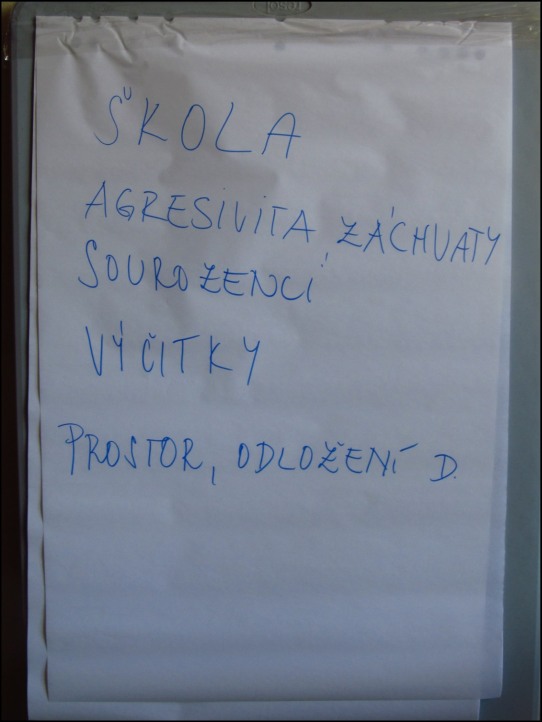 ŠKOLA
AGRESIVITA, ZÁCHVATY
SOUROZENCI
VÝČITKY
PROSTOR, ODLOŽENÍ D.